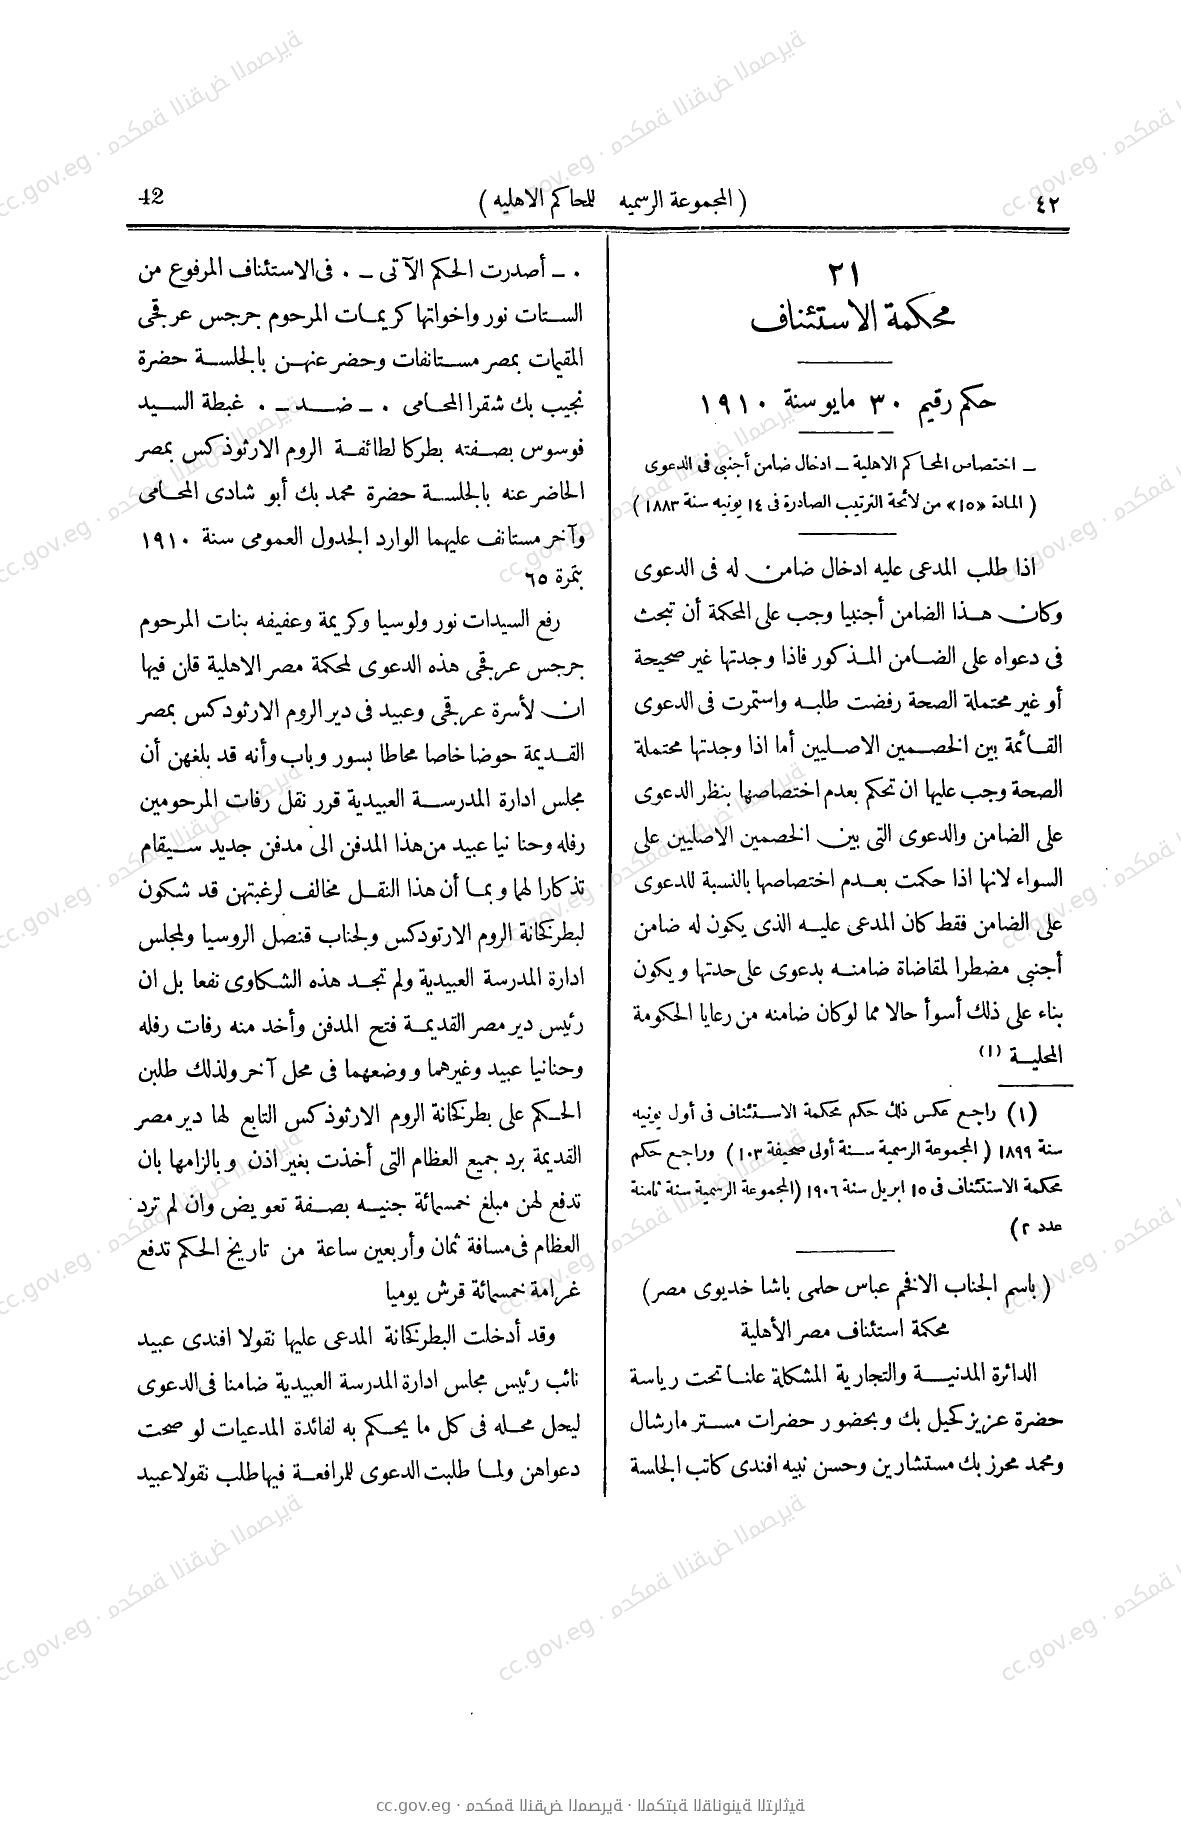 ٤٢
( المجموعة الرسميه للمحاكم الاهليه )
42
٢١
محكمة الاستئناف
حكم رقيم ٣٠ مايو سنة ١٩١٠
ـ اختصاص المحاكم الاهلية ـ ادخال ضامن أجنبى فى الدعوى
( المادة «١٥» من لائحة الترتيب الصادرة فى ١٤ يونيه سنة ١٨٨٣ )
اذا طلب المدعى عليه ادخال ضامن له فى الدعوى
وكان هذا الضامن أجنبيا وجب على المحكمة أن تبحث
فى دعواه على الضامن المذكور فاذا وجدتها غير صحيحة
أو غير محتملة الصحة رفضت طلبه واستمرت فى الدعوى
القائمة بين الخصمين الاصليين أما اذا وجدتها محتملة
الصحة وجب عليها ان تحكم بعدم اختصاصها بنظر الدعوى
على الضامن والدعوى التى بين الخصمين الاصليين على
السواء لانها اذا حكمت بعدم اختصاصها بالنسبة للدعوى
على الضامن فقط كان المدعى عليه الذى يكون له ضامن
أجنبى مضطرا لمقاضاة ضامنه بدعوى على حدتها ويكون
بناء على ذلك أسوأ حالا مما لوكان ضامنه من رعايا الحكومة
المحلية (١)
(١) راجع عكس ذلك حكم محكمة الاستئناف فى أول يونيه
سنة ١٨٩٩ ( المجموعة الرسمية سنة أولى صحيفة ١٠٣ ) وراجع حكم
محكمة الاستئناف فى ١٥ ابريل سنة ١٩٠٦ (المجموعة الرسمية سنة ثامنة
عدد ٢ )
( باسم الجناب الافخم عباس حلمى باشا خديوى مصر )
محكمة استئناف مصر الأهلية
الدائرة المدنية والتجارية المشكلة علنا تحت رياسة
حضرة عزيز كحيل بك وبحضور حضرات مستر مارشال
ومحمد محرز بك مستشارين وحسن نبيه افندى كاتب الجلسة
٠ ـ أصدرت الحكم الآتى ـ ٠ فى الاستئناف المرفوع من
الستات نور واخواتها كريمات المرحوم جرجس عرقجى
المقيمات بمصر مستانفات وحضر عنهن بالجلسة حضرة
نجيب بك شقرا المحامى ٠ ـ ضد ـ ٠ غبطة السيد
فوسوس بصفته بطركا لطائفة الروم الارثوذكس بمصر
الحاضر عنه بالجلسة حضرة محمد بك أبو شادى المحامى
وآخر مستانف عليهما الوارد الجدول العمومى سنة ١٩١٠
بنمرة ٦٥
رفع السيدات نور ولوسيا وكريمة وعفيفه بنات المرحوم
جرجس عرقجى هذه الدعوى لمحكمة مصر الاهلية قلن فيها
ان لأسرة عرقجى وعبيد فى دير الروم الارثودكس بمصر
القديمة حوضا خاصا محاطا بسور وباب وأنه قد بلغهن أن
مجلس ادارة المدرسة العبيدية قرر نقل رفات المرحومين
رفله وحنا نيا عبيد من هذا المدفن الى مدفن جديد سيقام
تذكارا لهما وبما أن هذا النقل مخالف لرغبتهن قد شكون
لبطركخانة الروم الارتودكس ولجناب قنصل الروسيا ولمجلس
ادارة المدرسة العبيدية ولم تجد هذه الشكاوى نفعا بل ان
رئيس دير مصر القديمة فتح المدفن وأخد منه رفات رفله
وحنانيا عبيد وغيرهما ووضعهما فى محل آخر ولذلك طلبن
الحكم على بطركخانة الروم الارثوذكس التابع لها دير مصر
القديمة برد جميع العظام التى أخذت بغير اذن وبالزامها بان
تدفع لهن مبلغ خمسمائة جنيه بصفة تعويض وان لم ترد
العظام فى مسافة ثمان وأربعين ساعة من تاريخ الحكم تدفع
غرامة خمسمائة قرش يوميا
وقد أدخلت البطركخانة المدعى عليها نقولا افندى عبيد
نائب رئيس مجلس ادارة المدرسة العبيدية ضامنا فى الدعوى
ليحل محله فى كل ما يحكم به لفائدة المدعيات لو صحت
دعواهن ولما طلبت الدعوى للمرافعة فيها طلب نقولا عبيد
cc.gov.eg · محكمة النقض المصرية · المكتبة القانونية التراثية